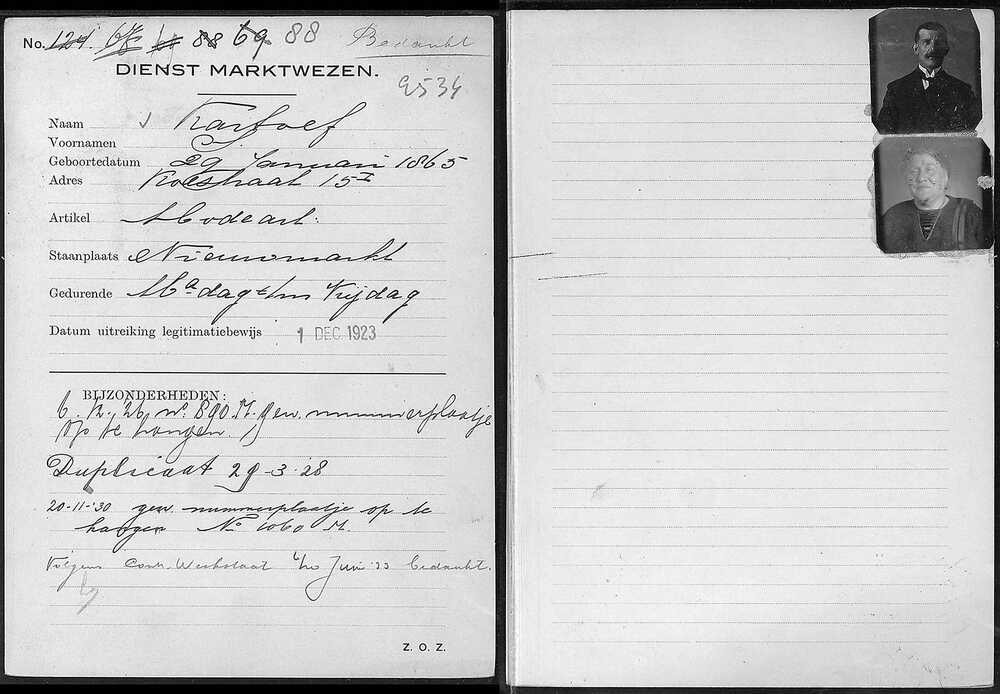 No. 124. 67 61 88 69 88 Bedankt
DIENST MARKTWEZEN.
9534
Naam √ Karsoef
Voornamen J
Geboortedatum 29 Januari 1865
Adres Koestraat 15 I
Artikel Modeart:
Staanplaats Nieuwmarkt
Gedurende Madag t/m Vrijdag
Datum uitreiking legitimatiebewijs 1 DEC. 1923
BIJZONDERHEDEN:
6.12.26 no. 890 M. gen. nummerplaatje
op te hangen.
Duplicaat 29-3-28
20-11-'30 gen. nummerplaatje op te
hangen No 1060 M.
Volgens Contr. Werkstaat Juni 33 bedankt.
Z. O. Z.